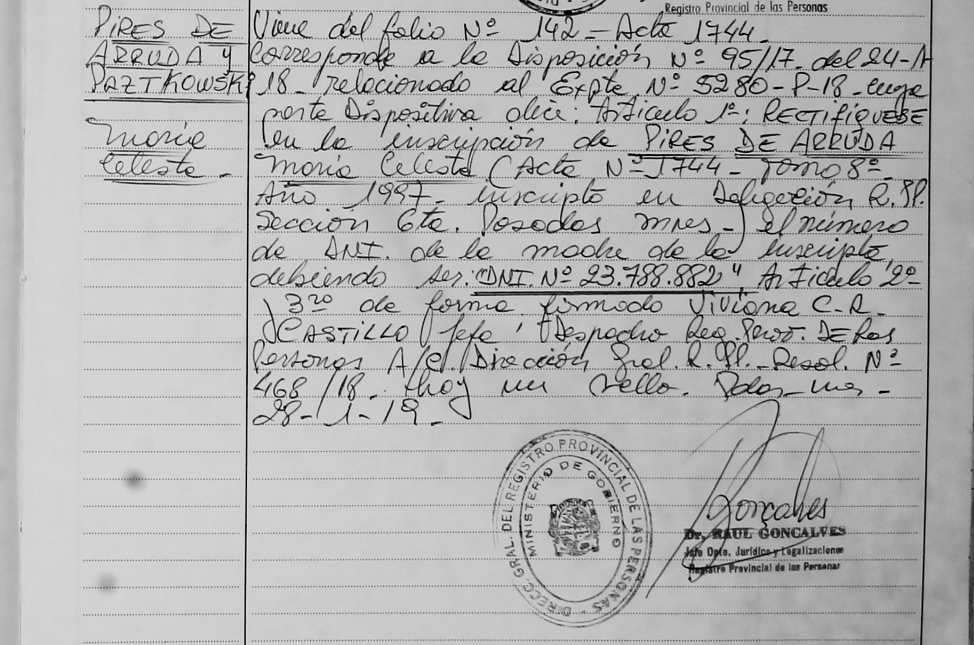 Registro Provincial de las Personas
PIRES DE
ARRUDA y
PAZTKOWSKI
María
Celeste -
Viene del folio Nº 142 - Acta 1744.
Corresponde a la Disposición Nº 95/17. del 24-
18 - relacionado al Expte. Nº 5280-P-18 - cuya
parte Dispositiva dice: Artículo 1º: RECTIFIQUESE
en la inscripción de PIRES DE ARRUDA
María Celeste (Acta Nº 1744 - Tomo 8º
Año 1997 - inscripto en Delegación R.P.P.
Sección 6ta. Posadas Mnes -) el número
de DNI. de la madre de la inscripta,
debiendo ser: "DNI. Nº 23.788.882" Artículo 2º
y 3ro de forma firmado Viviana C.R.
CASTILLO Jefa Despacho Reg. Prov. DE las
Personas A/C. Dirección Gral. R.P.P. - Resol. Nº
468/18. Hay un sello. Pdas - Mnes -
28-1-19.
DIRECC. GRAL. DEL REGISTRO PROVINCIAL DE LAS PERSONAS
MINISTERIO DE GOBIERNO
Gonçalves
Dr. RAUL GONCALVES
Jefe Dpto. Jurídico y Legalizaciones
Registro Provincial de las Personas